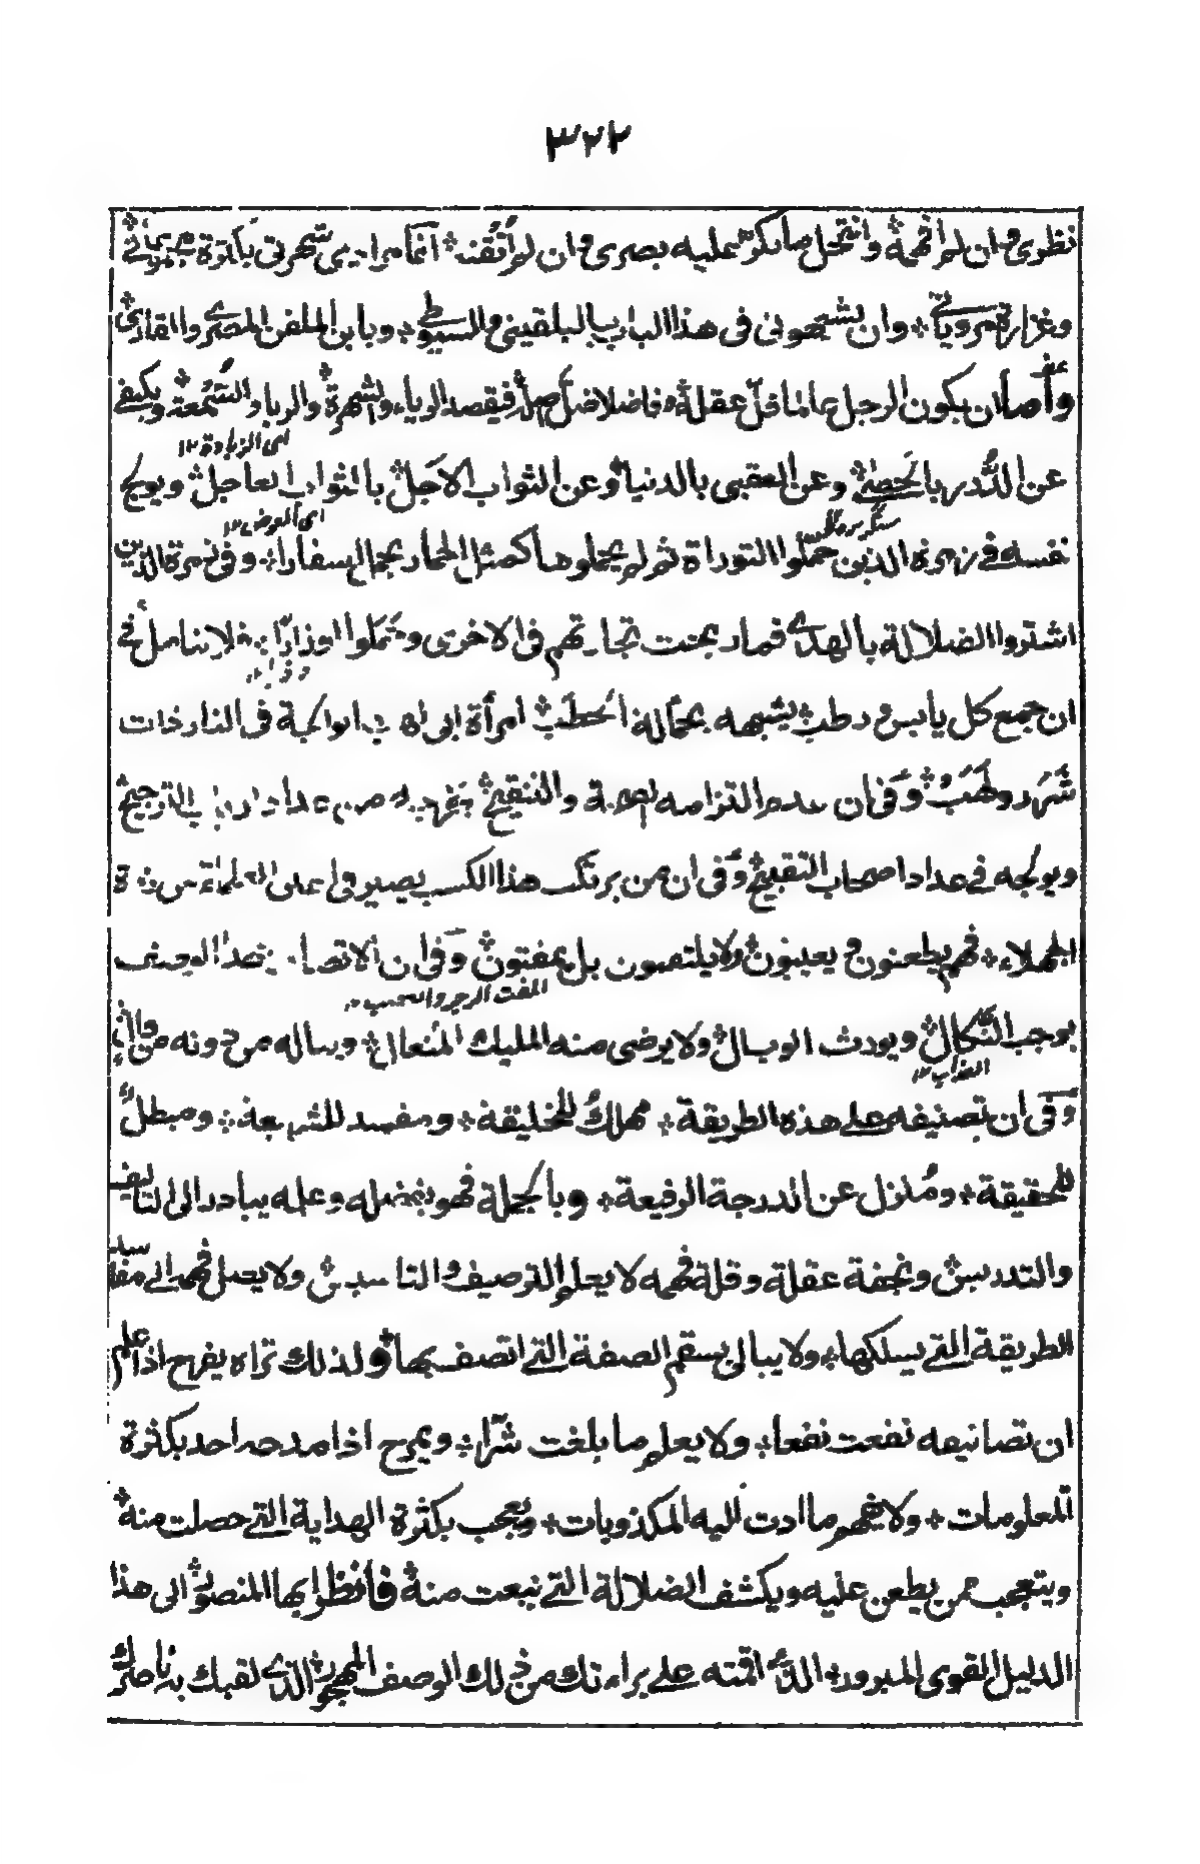 ٣٢٢
نظري وان لم افهمه وانتحل ما يكر عليه بصري وان لم اتقنه انما مرادي شهرتي بكثرة مجموعاتي
وغزارة مروياتي وان يشبهوني في هذا الباب بالبلقيني والسيوطي وبابن الملقن المصري والقاري
وأما ان يكون الرجل عالما قل عقله وفاضلا ضل اصله فيقصد الرياء والشهرة والرباء والسمعة ويكتفي
اى الزيادة ١٢
عن الدرر بالحصى وعن العقبى بالدنيا وعن الثواب الآجل بالثواب العاجل ويولج
اى العوض ١٢
نفسه في زمرة الذين حملوا التوراة ثم لم يحملوها كمثل الحمار يحمل اسفارا وفي زمرة الذين
اشتروا الضلالة بالهدى فما ربحت تجارتهم في الاخرى وحملوا اوزارا فلا يتأمل في
ان جمع كل يابس ورطب يشبهه بحمالة الحطب امرأة ابي لهب الوالجة في النار ذات
شرر ولهب وفي ان عدم التزامه الصحة والتنقيح يخرجه من عداد ارباب الترجيح
ويولجه في عداد اصحاب التقبيح وفي ان من يرتكب هذا الكسب يصير في اعين العلماء من
الجهلاء فهم يطعنون ويعيبون ولا يلتفتون بل يمقتون وفي ان الاتصاف بهذا الوصف
المقت الزجر والغضب ١٢
يوجب النكال ويورث الوبال ولا يرضى منه المليك المتعال ورساله من دونه من وال
العذاب ١٢
وفي ان تصنيفه على هذه الطريقة مهلك للخليقة ومفسد للشريعة ومبطل
للحقيقة ومنزل عن الدرجة الرفيعة وبالجملة فهو بفضله وعلمه يبادر الى التاليف
والتدريس وبخفة عقله وقلة فهمه لا يعلم التوصيف والتاسيس ولا يصل فهمه الى مفاسد
الطريقة التي يسلكها ولا يبالى بسقم الصفة التي اتصف بها ولذلك تراه يفرح اذا علم
ان تصانيفه نفعت نفعا ولا يعلم ما بلغت شرا ويمرح اذا مدحه احد بكثرة
المعلومات ولا يفهم ما ادت اليه المكذوبات ويعجب بكثرة الهداية التي حصلت منه
ويتعجب ممن يطعن عليه ويكشف الضلالة التي نبعت منه فانظر ايها المنصور الى هذا
الدليل القوى المبرور الذي اقمته على براءتك من ذلك الوصف المهجور الذي لقبك به ناصرك